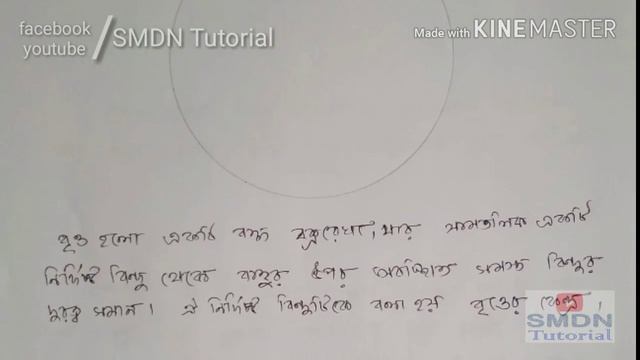 facebook
youtube
SMDN Tutorial
Made with KINEMASTER
বৃত্ত হলো একটি বদ্ধ বক্ররেখা, যার সমতলিক একটি
নির্দিষ্ট বিন্দু থেকে বস্তুর উপর অবস্থিত সমস্ত বিন্দুর
দূরত্ব সমান। ঐ নির্দিষ্ট বিন্দুটিকে বলা হয় বৃত্তের কেন্দ্র।
SMDN
Tutorial